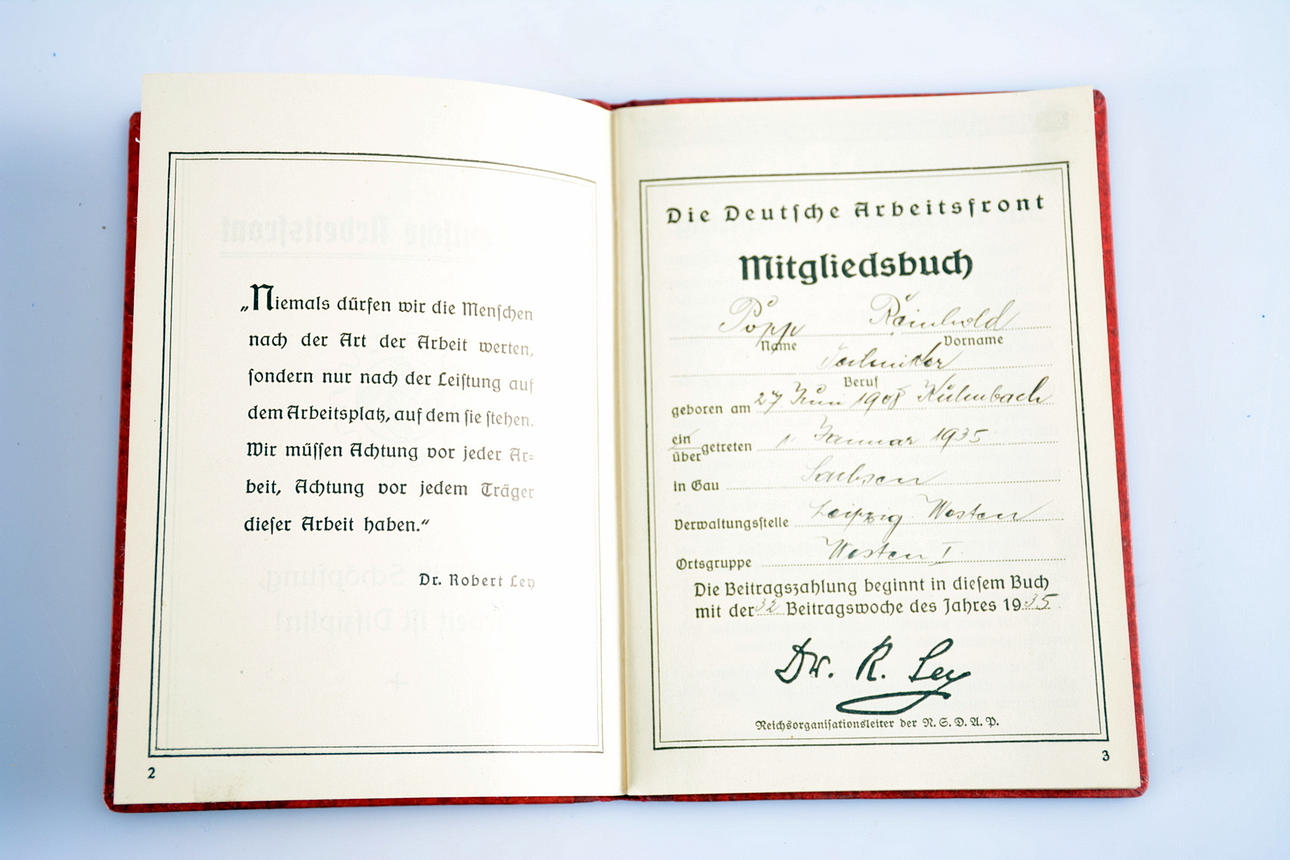 „Niemals dürfen wir die Menschen
nach der Art der Arbeit werten,
sondern nur nach der Leistung auf
dem Arbeitsplatz, auf dem sie stehen.
Wir müssen Achtung vor jeder Ar=
beit, Achtung vor jedem Träger
dieser Arbeit haben.“
Dr. Robert Ley
2
Die Deutsche Arbeitsfront
Mitgliedsbuch
Popp Reinhold
Name Vorname
Techniker
Beruf
geboren am 27 Juni 1908 Kulmbach
ein
getreten 1. Januar 1935
über
in Gau Sachsen
Verwaltungsstelle Leipzig Westen
Ortsgruppe Westen I.
Die Beitragszahlung beginnt in diesem Buch
mit der 32 Beitragswoche des Jahres 1935
Dr. R. Ley
Reichsorganisationsleiter der N. S. D. A. P.
3